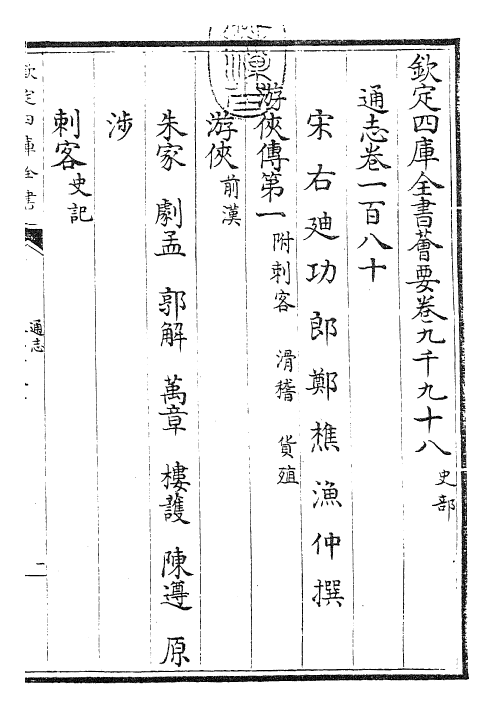 欽定四庫全書薈要卷九千九十八 史部
通志卷一百八十
宋右廸功郎鄭樵漁仲撰
游俠傳第一 附刺客 滑稽 貨殖
游俠 前漢
朱家 劇孟 郭解 萬章 樓護 陳遵 原
涉
刺客 史記
欽定四庫全書
通志